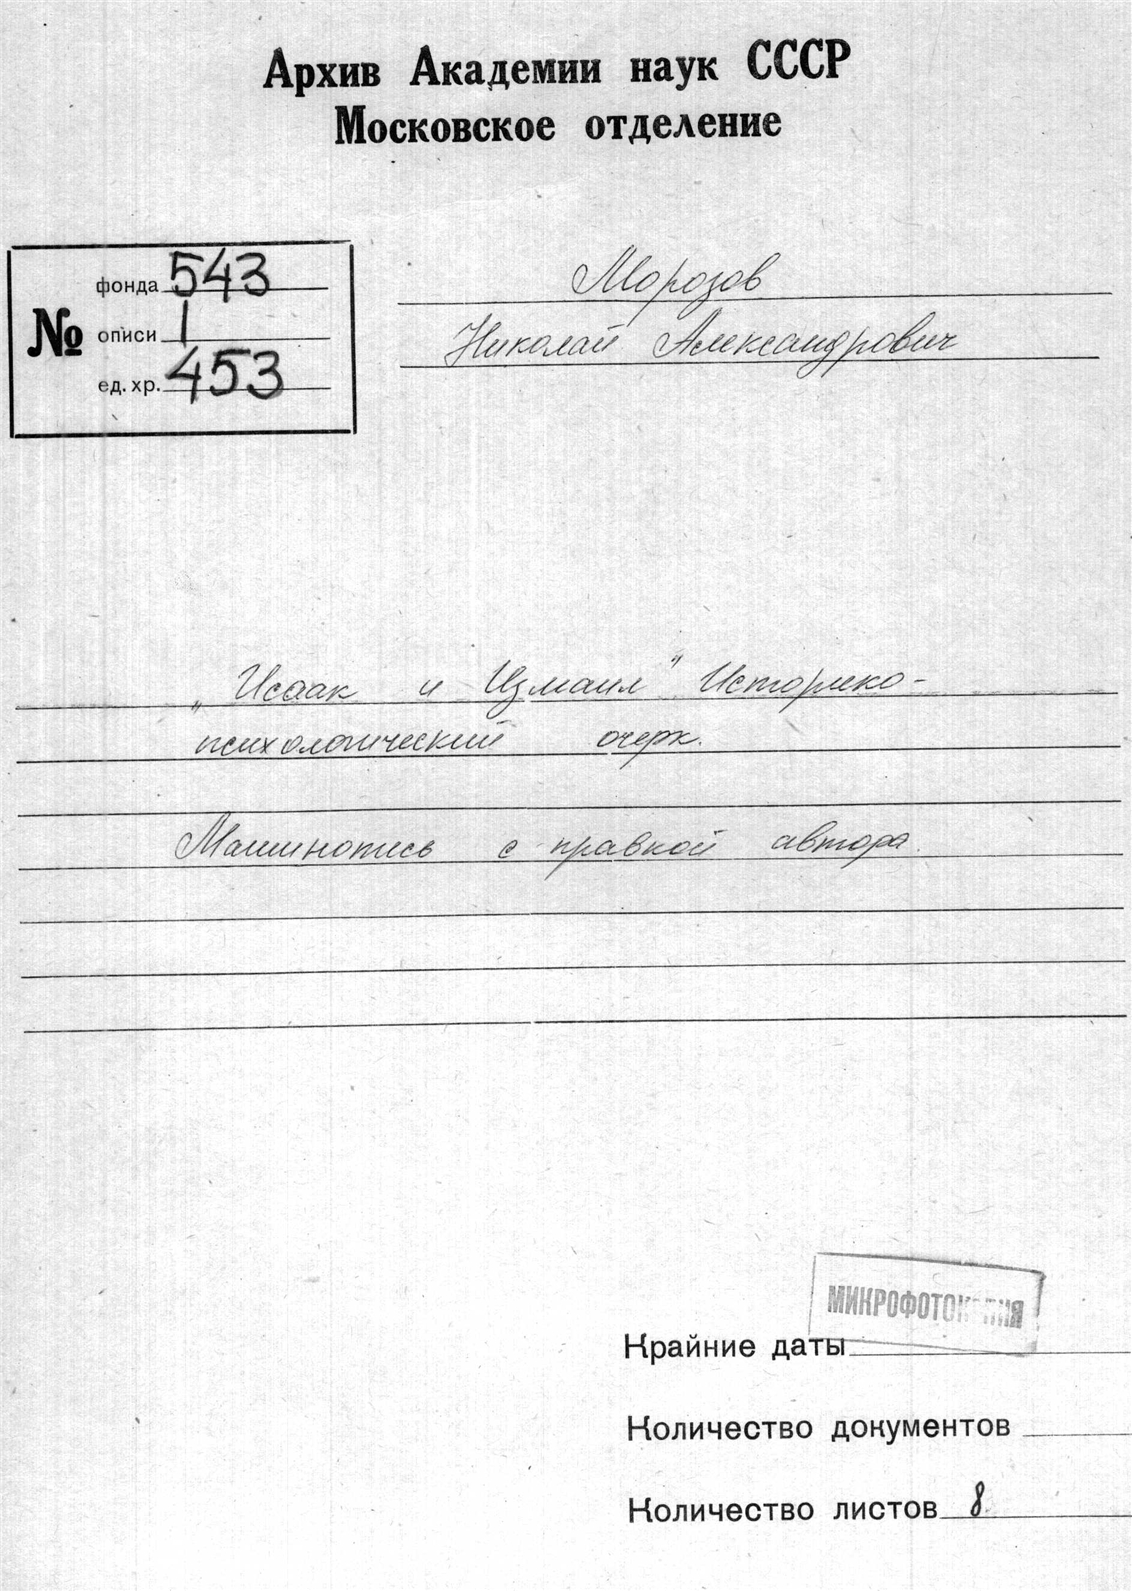 Архив Академии наук СССР
Московское отделение
№
фонда 543
описи 1
ед. хр. 453
Морозов
Николай Александрович
„Исаак и Измаил" Историко-
психологический очерк.
Машинопись с правкой автора.
МИКРОФОТОКОПИЯ
Крайние даты
Количество документов
Количество листов 8